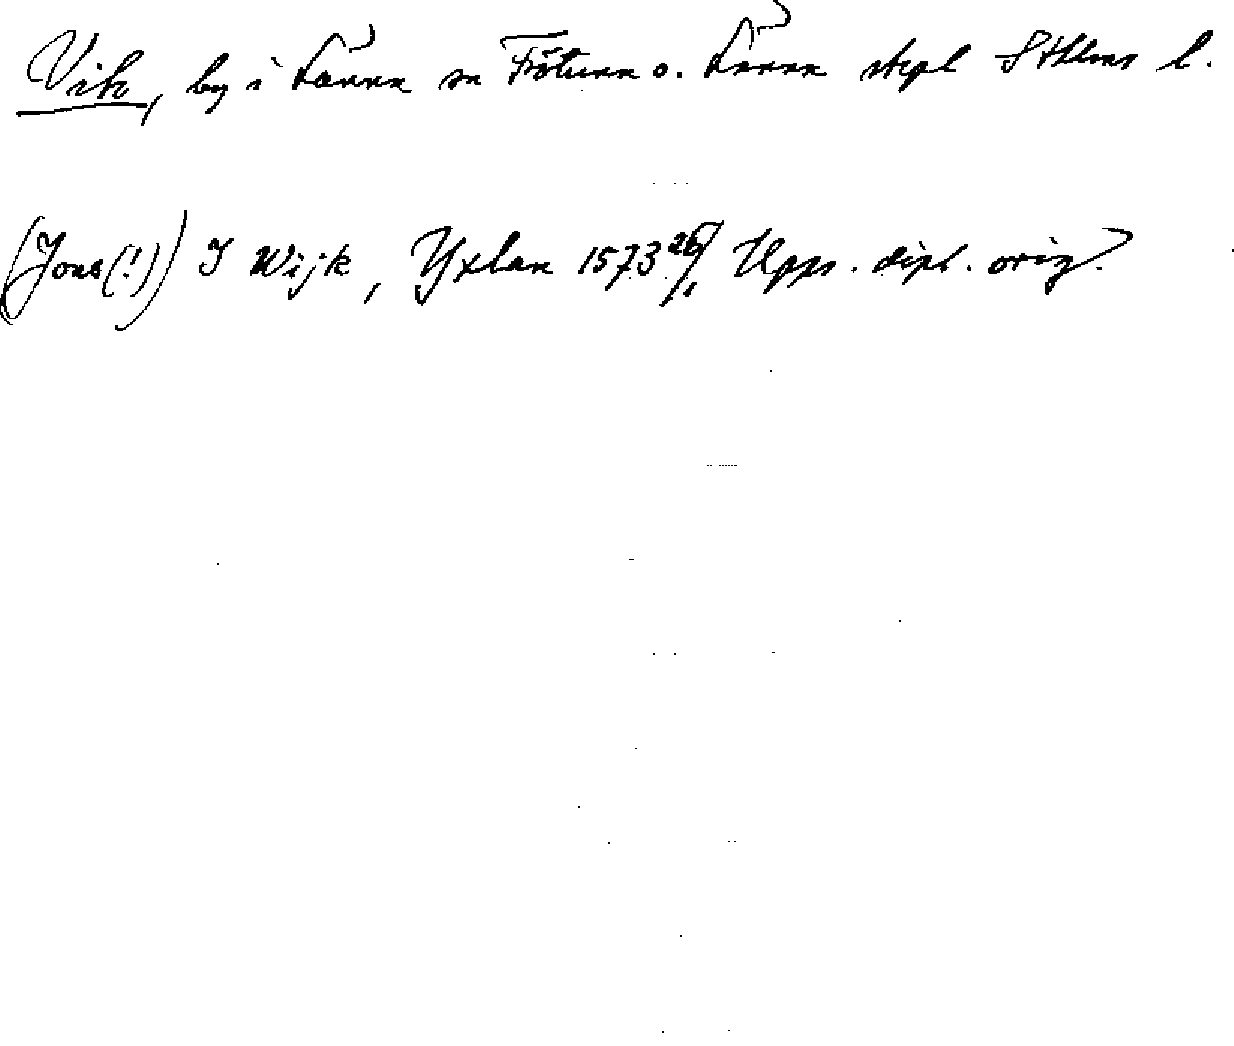 Vik, by i Länna sn Frötuna o. Länna skpl Sthlms l.
(Jons(!)) I Wijk, Yxlan 1573 26/1 Upps. dipl. orig.